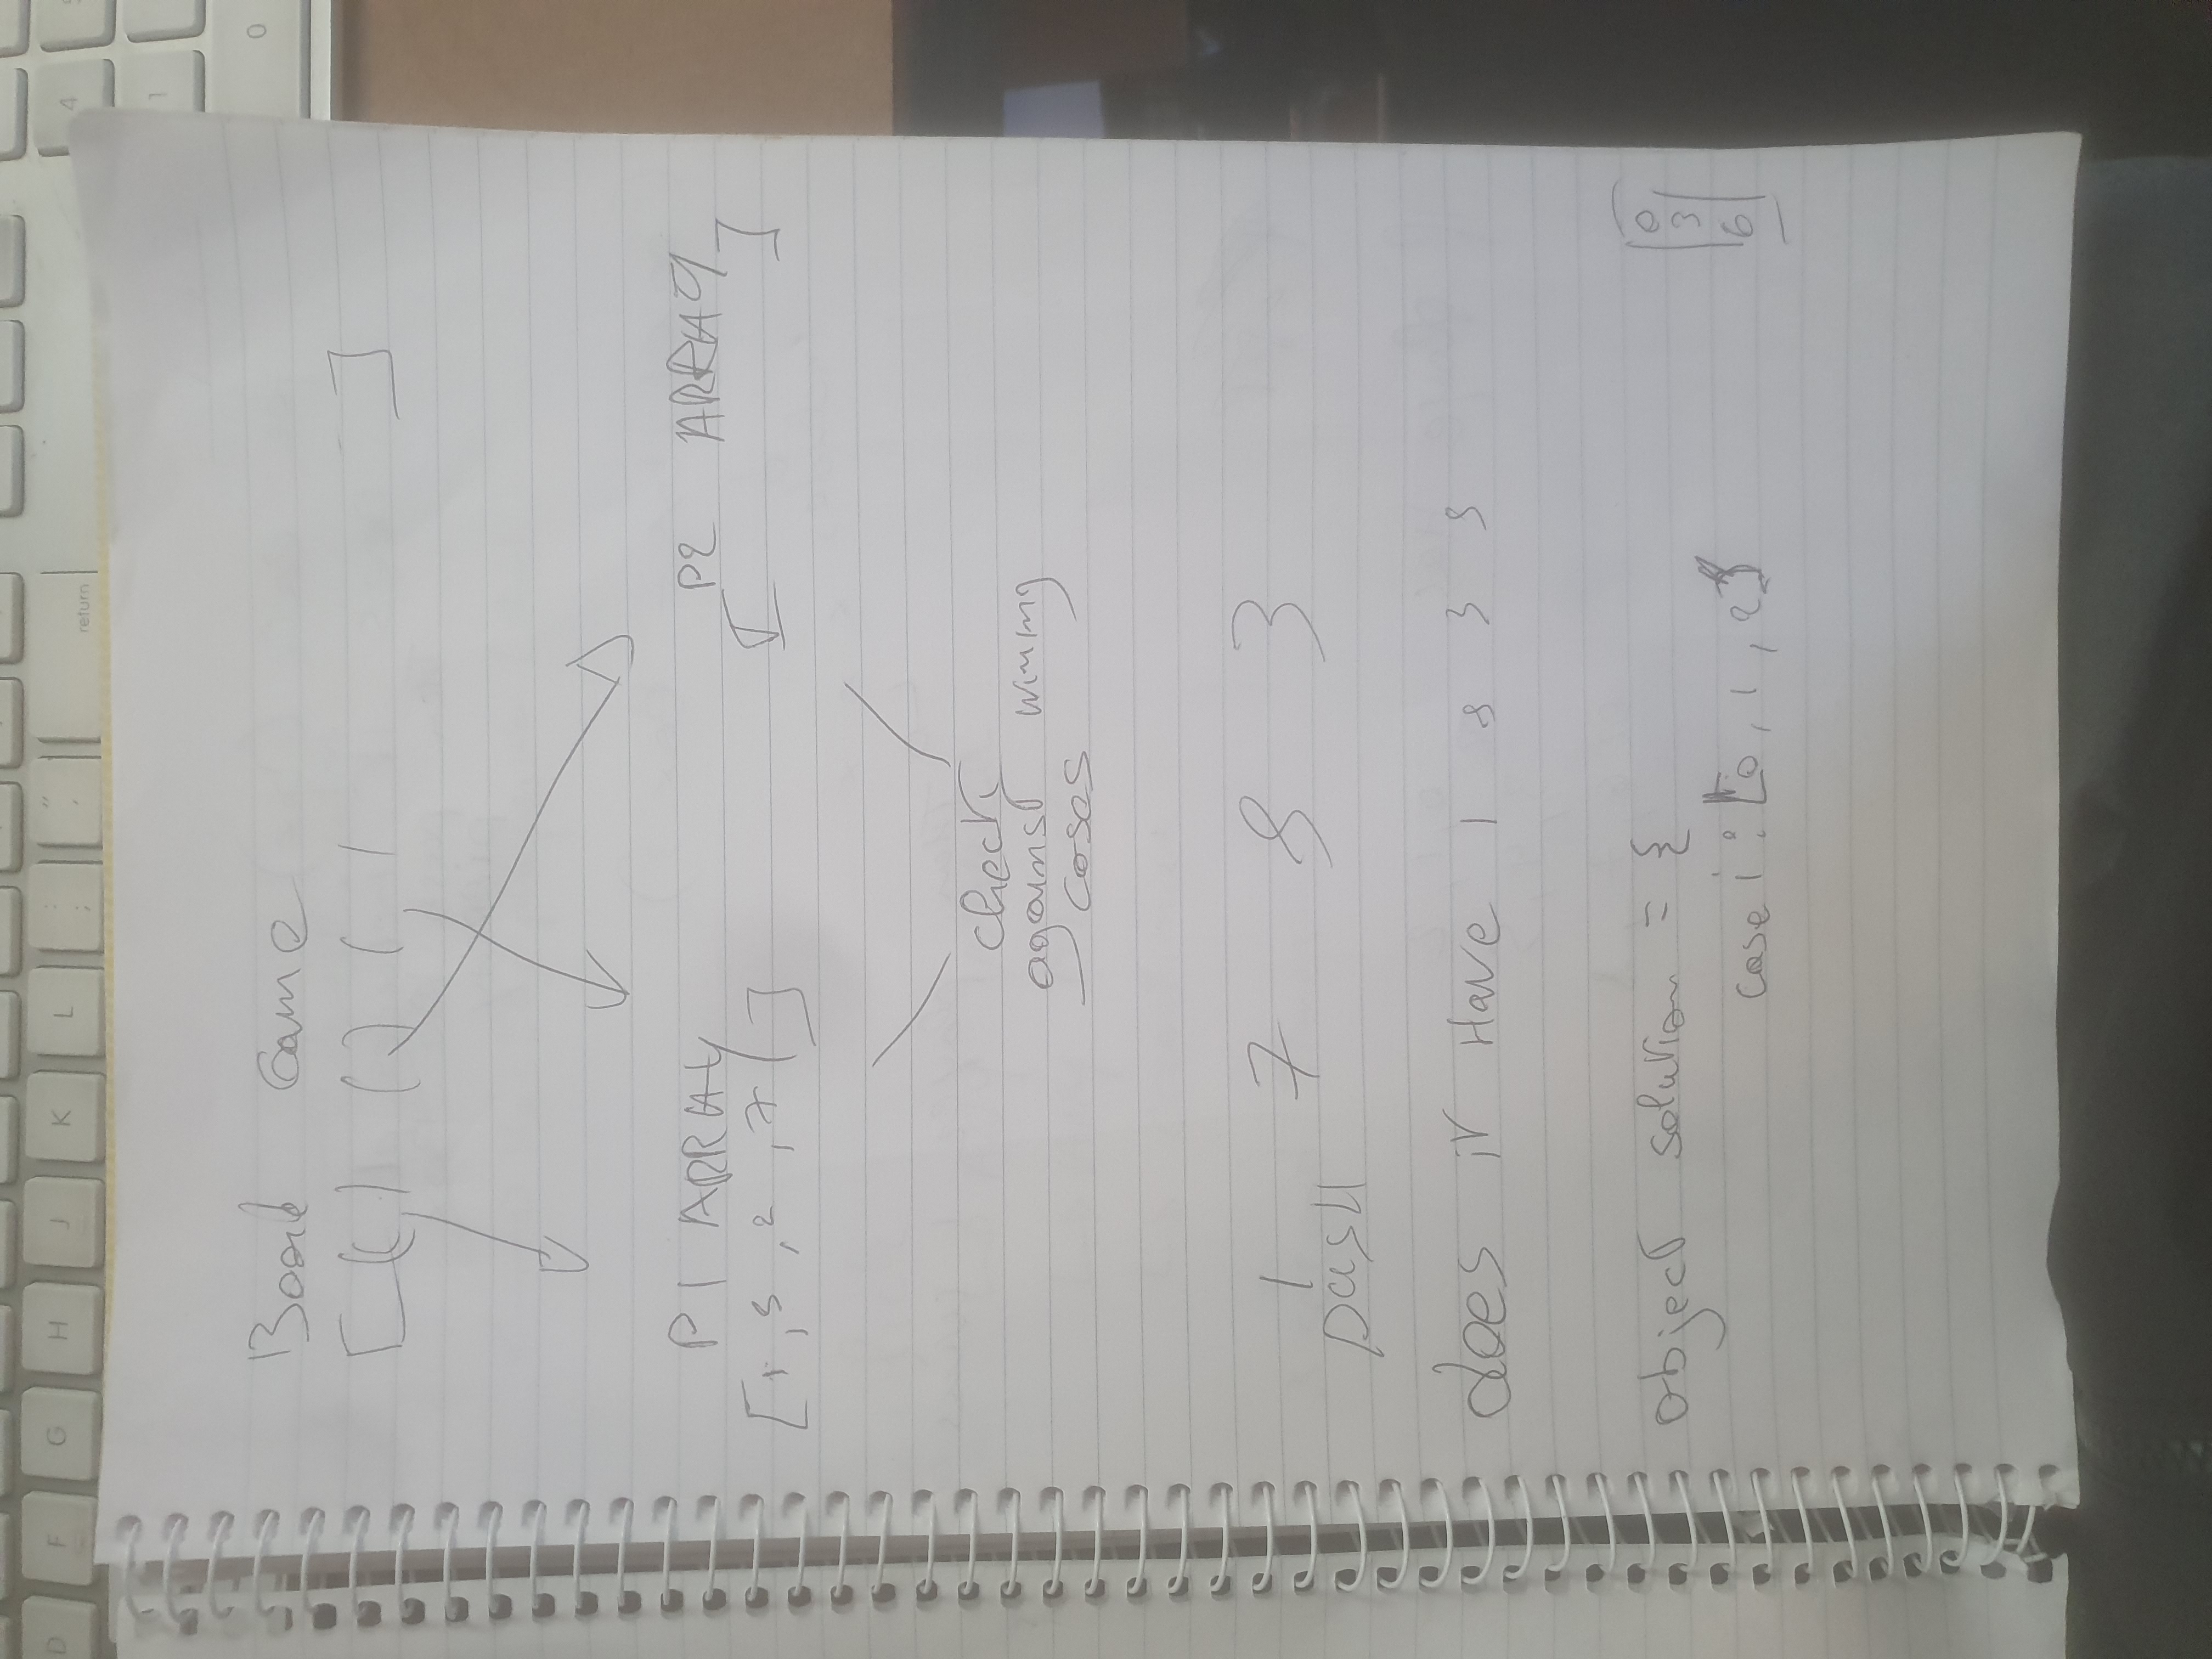 D F G H J K L : ; " ' return 4
1
0
Board Game
[ ( ( ) ( ) ( ) ]
P1 ARRAY P2 ARRAY
[ 1 , 3 , 2 , 7 ] [ ]
check
against wining
cases
1 7 8 3
PUSH
does it Have 1 8 3
object solution = {
case 1 : [ 0 , 1 , 2 ]
0
3
6